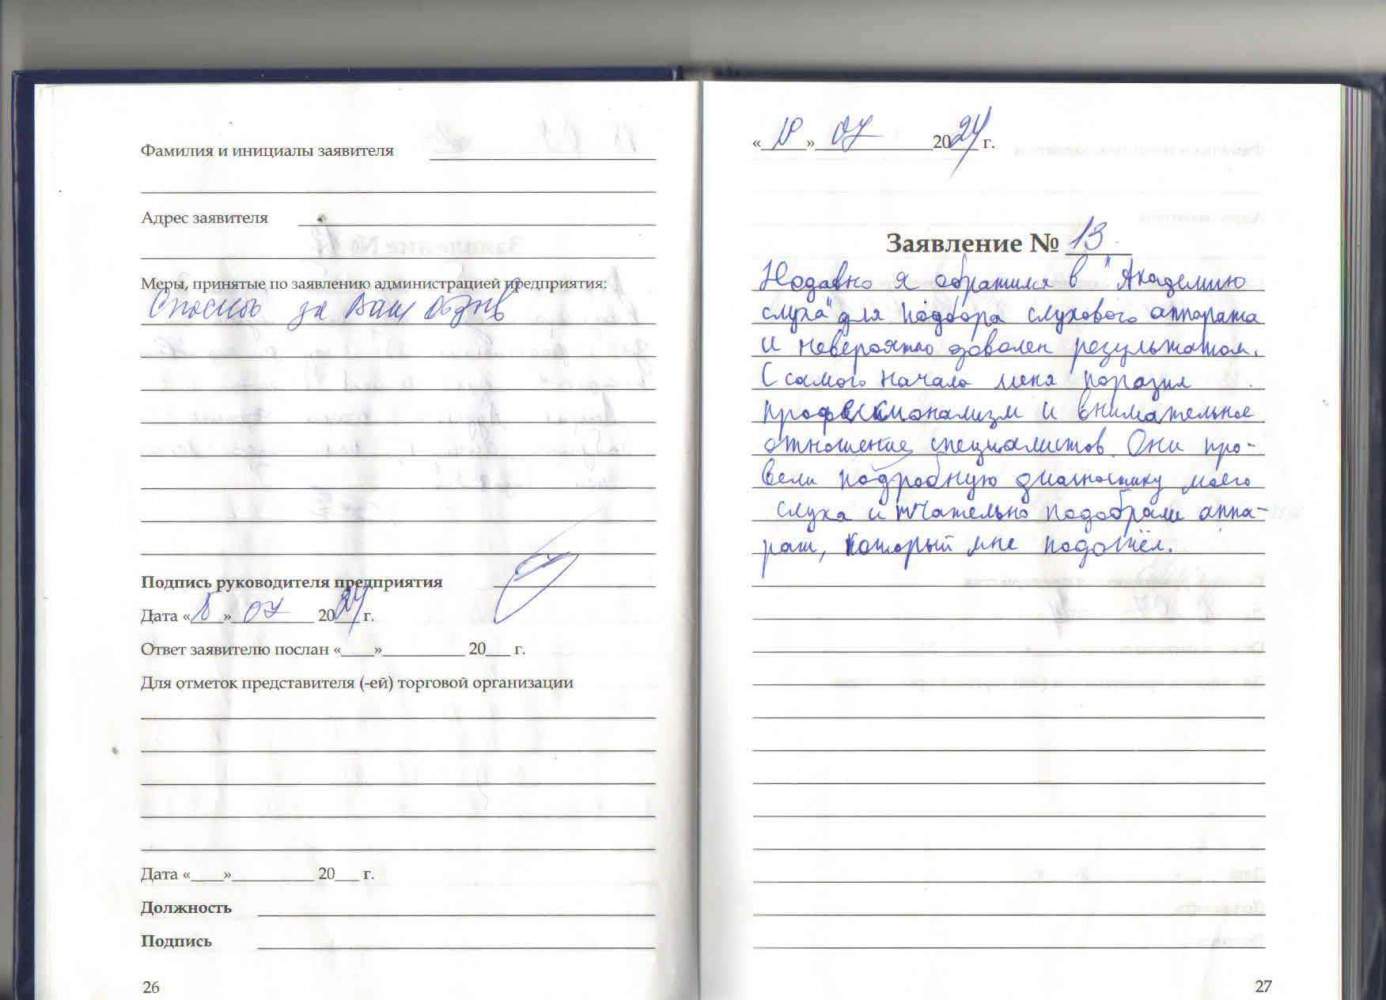 Фамилия и инициалы заявителя
Адрес заявителя
Меры, принятые по заявлению администрацией предприятия:
Спасибо за Ваш отзыв
Подпись руководителя предприятия
Дата «18» 07 2024 г.
Ответ заявителю послан «____»__________ 20___ г.
Для отметок представителя (-ей) торговой организации
Дата «____»__________ 20___ г.
Должность
Подпись
26
«18» 07 2024 г.
Заявление № 13
Недавно я обратился в "Академию
слуха" для подбора слухового аппарата
и невероятно доволен результатом.
С самого начала меня поразил
профессионализм и внимательное
отношение специалистов. Они про-
вели подробную диагностику моего
слуха и тчательно подобрали аппа-
рат, который мне подошёл.
27